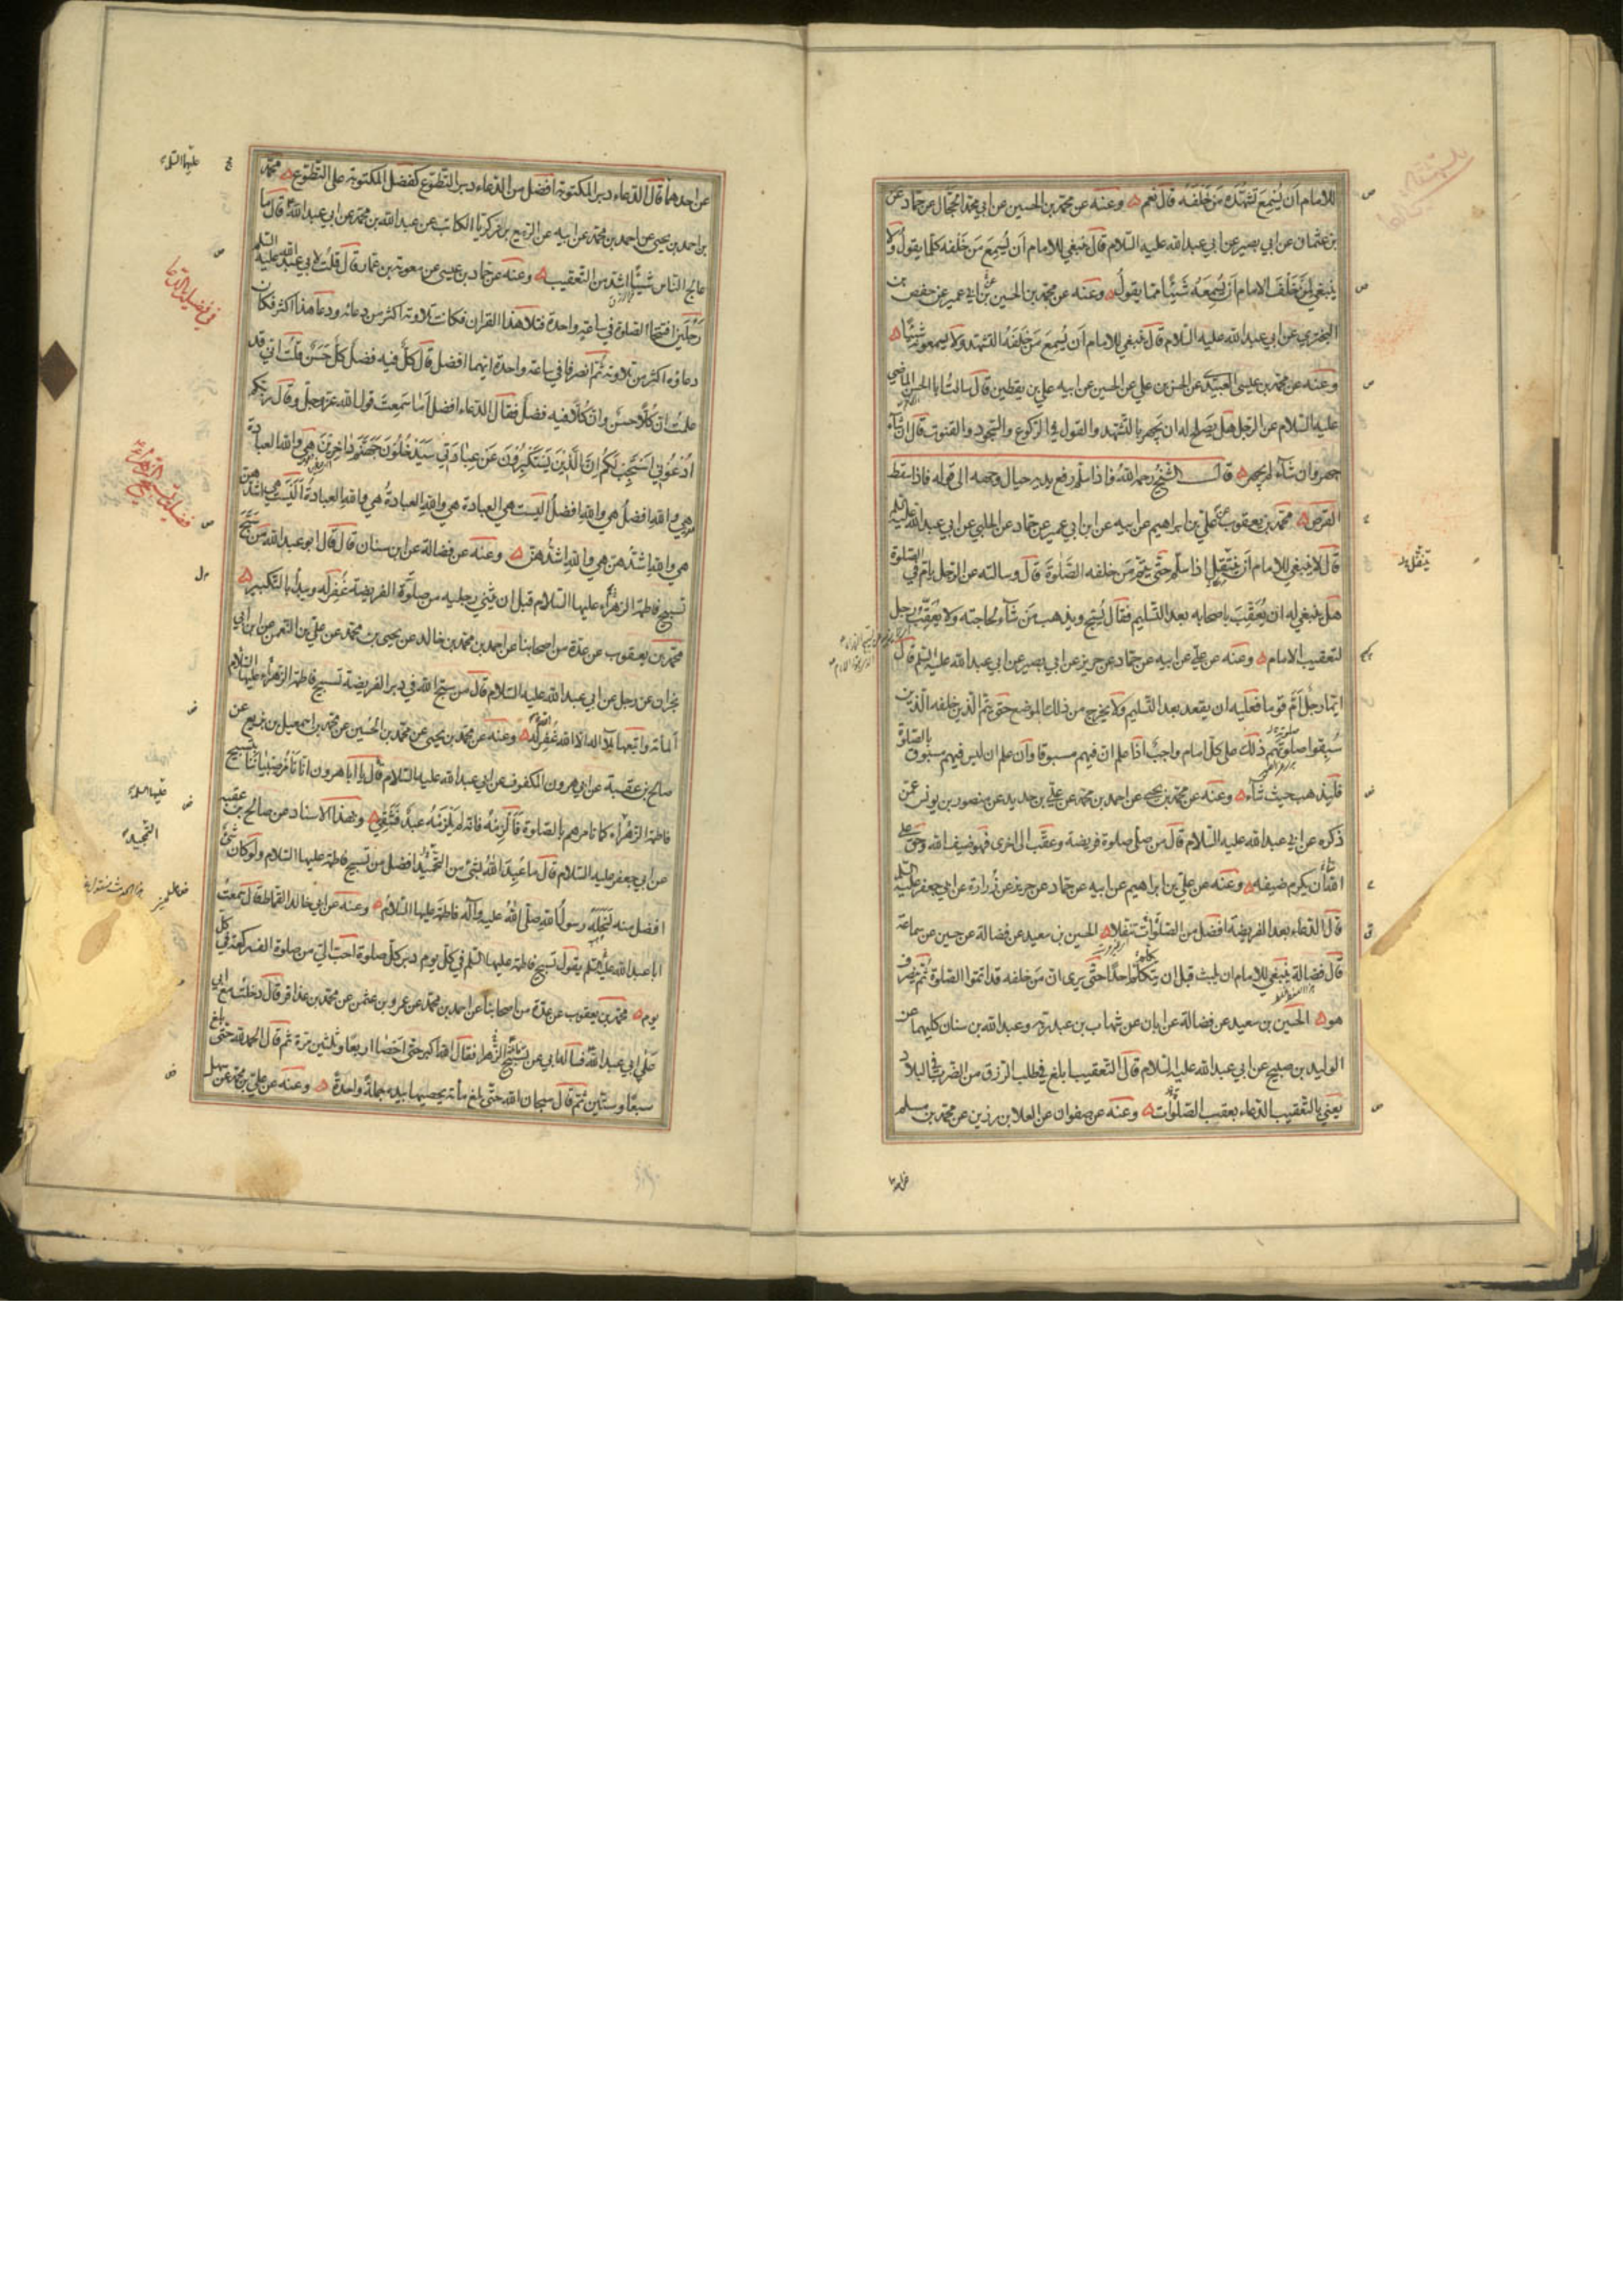 للامام ان يُسمِعَ تشهّده مَن خَلفَهُ قال نعم وعنه عن محمد بن الحسين عن ابي محمد الحجّال عن حماد عن
بن عثمان عن ابي بصير عن ابي عبد الله عليه السلام قال ينبغي للامام اَن يُسمِعَ مَن خَلفَه كلّما يقولُ ولا
ينبغي لمن خَلفَ الامام اَن يُسمِعَهُ شَيئًا ممّا يقولُ وعنه عن محمد بن الحسين عن ابن ابي عمير عن حفص بن
البختري عن ابي عبد الله عليه السلام قال ينبغي للامام اَن يُسمِعَ مَن خَلفَهُ التشهّد ولا يسمعونه شيئًا
وعنه عن محمد بن عيسى العبيدي عن الحسن بن علي عن الحسين عن ابيه علي بن يقطين قال سالتُ ابا الحسن الماضي
عليه السلام عن الرجل هل يصلح له ان يجهر بالتشهّد والقول في الركوع والسجود والقنوت قال ان شآء
جهر وان شآء لم يجهر قال الشيخ رحمه الله فاذا سلّم رفع يديه حيال وجهه الى قوله فاذا سقط
القرص محمد بن يعقوب عن علي بن ابراهيم عن ابيه عن ابن ابي عمير عن حماد عن الحلبي عن ابي عبد الله عليه السلم
قال لا ينبغي للامام اَن ينتقل اذا سلّم حتى يتمّ مَن خلفه الصَّلوةَ قال وسالته عن الرجل يامّ في الصلوة
هل ينبغي له ان يُعَقِّبَ باصحابه بعد التسليم فقال يُسبّح ويذهب مَن شآء لحاجته ولا يُعَقّبُ رجل
لتعقيب الامام وعنه عن علي عن ابيه عن حماد عن حريز عن ابي بصير عن ابي عبد الله عليه السلم قال
ايّما رجل اَمّ قوما فعليه ان يقعد بعد التسليم ولا يخرج من ذلك الموضع حتى يتمّ الذين خلفه الذين
سُبِقوا صلوتهم ذلك على كلّ امام واجبٌ اذا علم انّ فيهم مسبوقا وان علم ان ليس فيهم مسبوق بالصلوة
فليذهب حيث شآء وعنه عن محمد بن يحيى عن احمد بن محمد عن علي بن حديد عن منصور بن يونس عمّن
ذكره عن ابي عبد الله عليه السلام قال من صلّى صلوة فريضة وعقّب الى اخرى فهو ضيف الله وحق على
الله ان يكرم ضيفه وعنه عن علي بن ابراهيم عن ابيه عن حماد عن حريز عن زرارة عن ابي جعفر عليه السلم
قال الدعاء بعد الفريضة افضل من الصّلوات تنفّلا الحسين بن سعيد عن فضالة عن حسين عن سماعة
قال فضالة ينبغي للامام ان يلبث قبل ان يتكلّم احدا حتى يرى انّ مَن خلفه قد اتمّوا الصلوة ثم ينصرف
هو الحسين بن سعيد عن فضالة عن ابان عن شهاب بن عبد ربّه وعبد الله بن سنان كليهما عن
الوليد بن صبيح عن ابي عبد الله عليه السلام قال التعقيب ابلغ في طلب الرزق من الضرب في البلاد
يعني بالتعقيب الدعاء بعقب الصّلوات وعنه عن صفوان عن العلا بن رزين عن محمد بن مسلم
عن احدهما قال الدعاء دبر المكتوبة افضل من الدعاء دبر التطوّع كفضل المكتوبة على التطوّع محمد
بن احمد بن يحيى عن احمد بن محمد عن ابيه عن الربيع بن زكريا الكاتب عن عبد الله بن محمد عن ابي عبد الله قال ما
عالج الناس شيئًا اشدّ من التعقيب وعنه عن حماد بن عيسى عن معوية بن عمار قال قلتُ لابي عبد الله عليه السلم
رَجُلين افتتحا الصلوة في ساعة واحدة فتلا هذا القران فكانت تلاوته اكثر من دعائه ودعا هذا اكثر فكان
دعاؤه اكثر من تلاوته ثمّ انصرفا في ساعة واحدة ايّهما افضل قال كلٌّ فيه فضلٌ كلٌّ حَسَنٌ قلتُ انّي قد
علمتُ انّ كُلًّا حسنٌ وانّ كُلًّا فيه فضلٌ فقال الدعاء افضل اَما سَمِعتَ قول الله عزّ وجلّ وقال ربّكم
اُدْعُونِي اَسْتَجِبْ لَكُمْ اِنَّ الَّذِينَ يَسْتَكْبِرُونَ عَنْ عِبَادَتِي سَيَدْخُلُونَ جَهَنَّمَ دَاخِرِينَ هي والله العبادة
هي والله افضلُ هي والله افضلُ اليست هي العبادة هي والله العبادةُ هي والله العبادةُ اَلَيْسَت هي اشدّهنّ
هي والله اشدُّهنّ هي والله اشدُّهنّ وعنه عن فضالة عن ابن سنان قال قال ابو عبد الله مَن سَبَّحَ
تسبيح فاطمة الزهراء عليها السلام قبل ان يثني رجليه من صلوة الفريضة غُفِرَ له ويبدأ بالتكبير
محمد بن يعقوب عن عدّة من اصحابنا عن احمد بن محمد بن خالد عن يحيى بن محمد عن علي بن النعمن عن ابن ابي
نجران عن رجل عن ابي عبد الله عليه السلام قال من سبّح الله في دبر الفريضة تسبيح فاطمة الزهراء عليها السلام
المائة واتبعها بلا اله الا الله غُفِرَ له وعنه عن محمد بن يحيى عن محمد بن الحسين عن محمد بن اسمعيل بن بزيع عن
صالح بن عقبة عن ابي هرون المكفوف عن ابي عبد الله عليه السلام قال يا ابا هرون انّا نَأمُرُ صِبياننا بتسبيح
فاطمة الزهراء كما نامرهم بالصلوة فَاَلْزِمْهُ فانه لم يَلْزَمْهُ عبدٌ فشَقِيَ وبهذا الاسناد عن صالح بن عقبة
عن ابي جعفر عليه السلام قال ما عُبِدَ اللهُ بشيء من التحميد افضل من تسبيح فاطمة عليها السلام ولو كان شيء
افضل منه لَنَحَلَهُ رسول الله صلى الله عليه وآله فاطمةَ عليها السلام وعنه عن ابي خالد القماط قال سمعت
ابا عبد الله عليه السلم يقول تسبيح فاطمة عليها السلم في كلّ يوم دبر كلّ صلوة احبّ اليّ من صلوة الف ركعة في كلّ
يوم محمد بن يعقوب عن عدّة من اصحابنا عن احمد بن محمد عن عمرو بن عثمن عن محمد بن عذافر قال دخلت مع ابي
على ابي عبد الله فساله ابي عن تسبيح الزهراء فقال الله اكبر حتى احصا اربعًا وثلثين مرّة ثمّ قال الحمد لله حتى بلغ
سبعًا وستين ثمّ قال سبحان الله حتى بلغ مائة يحصيها بيده جملةً واحدةً وعنه عن علي بن محمد عن سهل